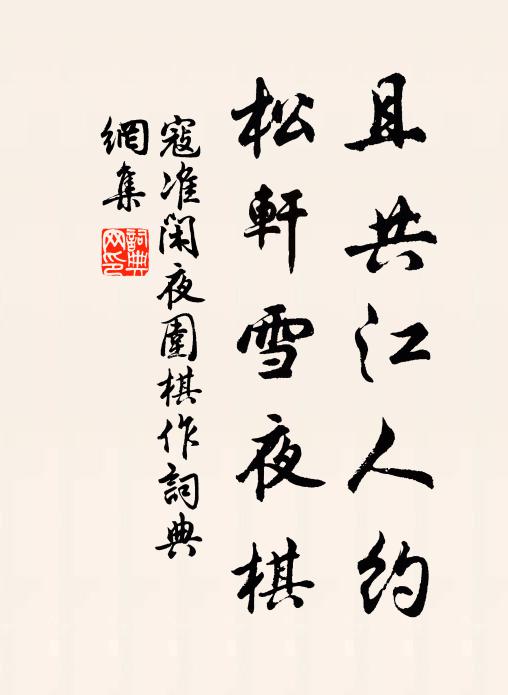 且共江人約
松軒雪夜棋
寇准閑夜圍棋作詞典
網集
詞典
网印